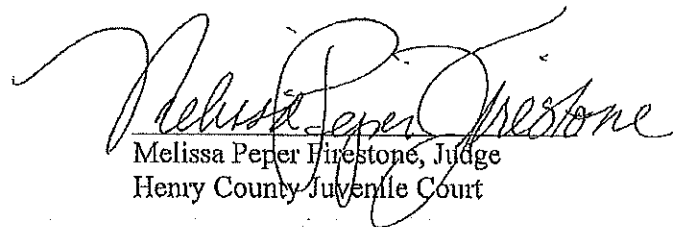 Melissa Peper Firestone
Melissa Peper Firestone, Judge
Henry County Juvenile Court